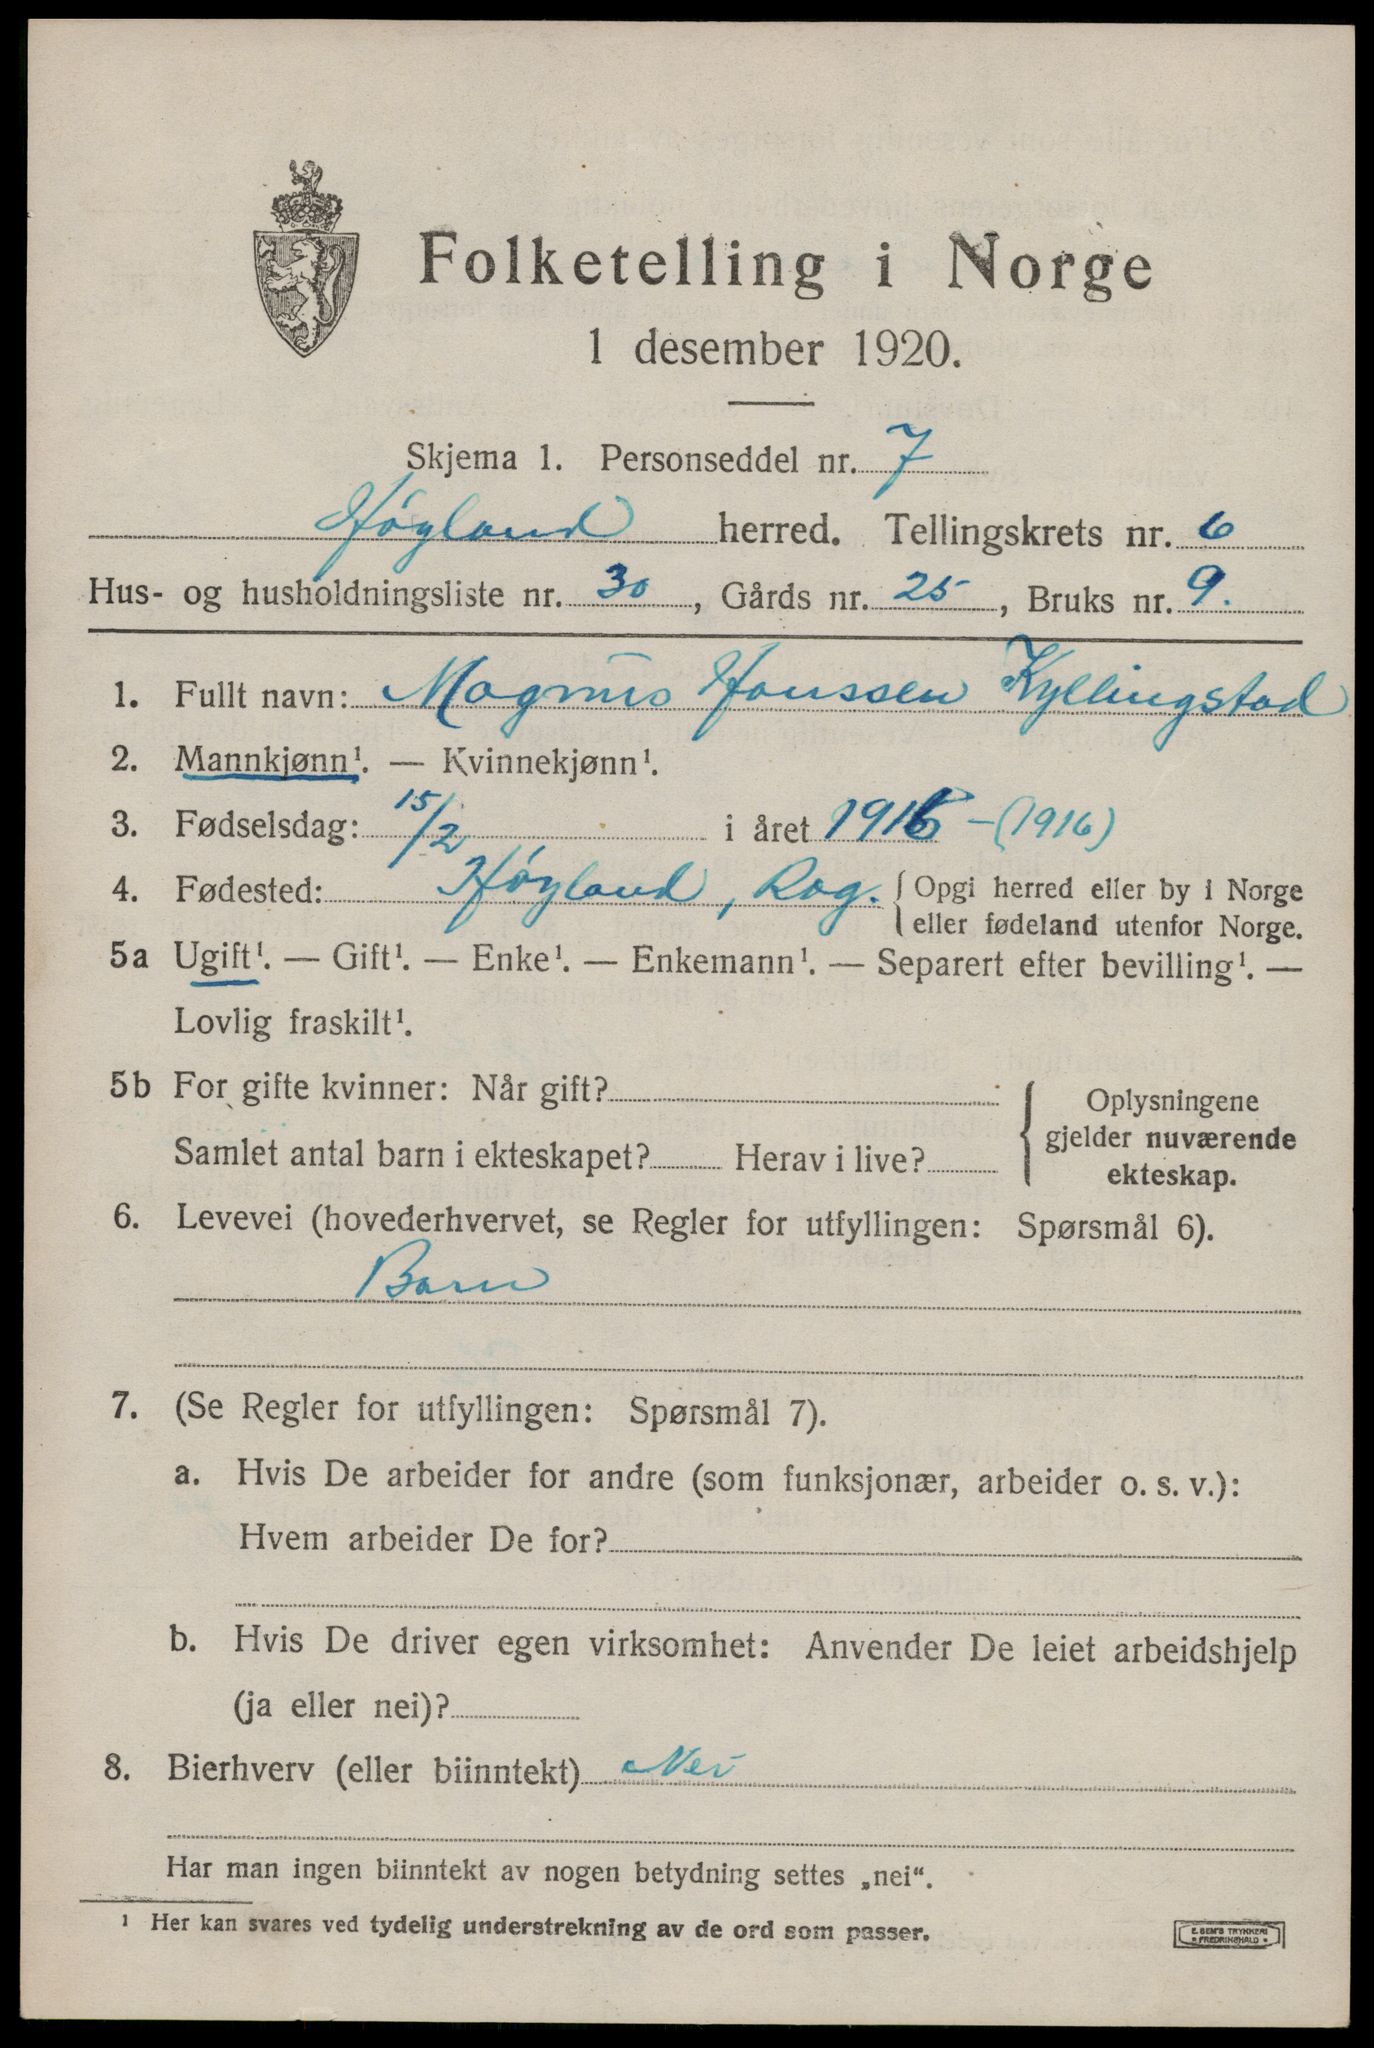 Folketelling i Norge
1 desember 1920.
Skjema 1. Personseddel nr. 7
Høyland herred. Tellingskrets nr. 6
Hus- og husholdningsliste nr. 30, Gårds nr. 25, Bruks nr. 9.
1. Fullt navn: Magnus Hanssen Kyllingstad
2. Mannkjønn¹. — Kvinnekjønn¹.
3. Fødselsdag: 15/2 i året 1916 - (1916)
4. Fødested: Høyland, Rog. { Opgi herred eller by i Norge
eller fødeland utenfor Norge.
5a Ugift¹. — Gift¹. — Enke¹. — Enkemann¹. — Separert efter bevilling¹. —
Lovlig fraskilt¹.
5b For gifte kvinner: Når gift?
Samlet antal barn i ekteskapet? Herav i live?
Oplysningene
gjelder nuværende
ekteskap.
6. Levevei (hovederhvervet, se Regler for utfyllingen: Spørsmål 6).
Barn
7. (Se Regler for utfyllingen: Spørsmål 7).
a. Hvis De arbeider for andre (som funksjonær, arbeider o. s. v.):
Hvem arbeider De for?
b. Hvis De driver egen virksomhet: Anvender De leiet arbeidshjelp
(ja eller nei)?
8. Bierhverv (eller biinntekt) Nei
Har man ingen biinntekt av nogen betydning settes „nei“.
¹ Her kan svares ved tydelig understrekning av de ord som passer.
E. SEM'S TRYKKERI
FREDRIKSHALD